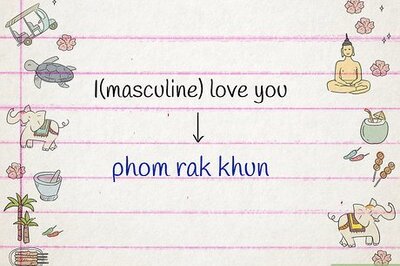 I(masculine) love you
↓
phom rak khun